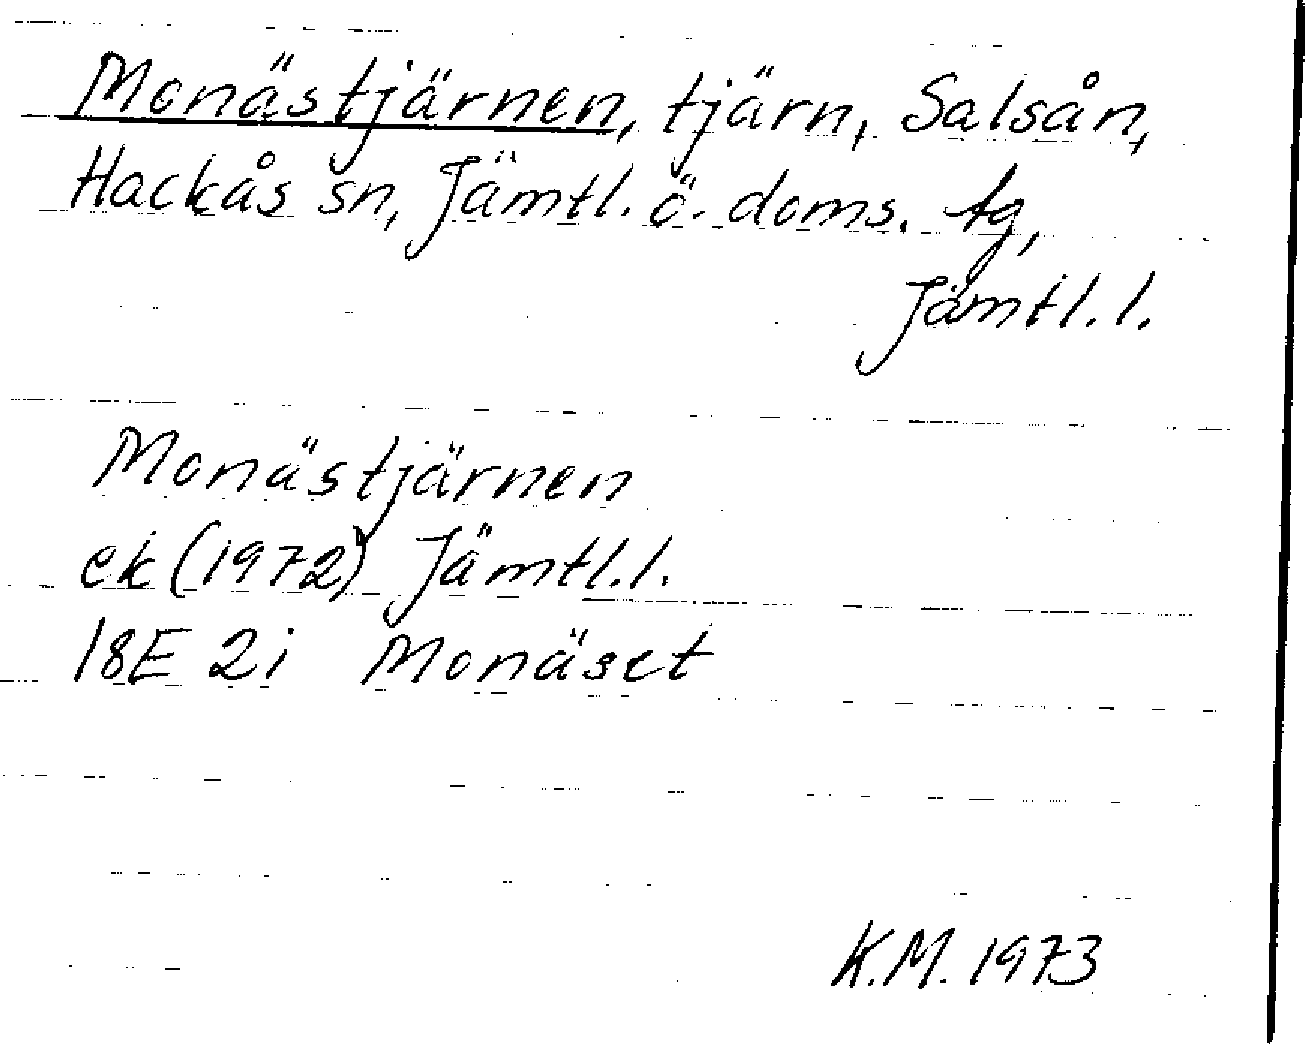 Monästjärnen, tjärn, Salsån,
Hackås sn, Jämtl. ö. doms. tg,
Jämtl. l.
Monästjärnen
ek (1972) Jämtl. l.
18E 2i Monäset
K.M. 1973